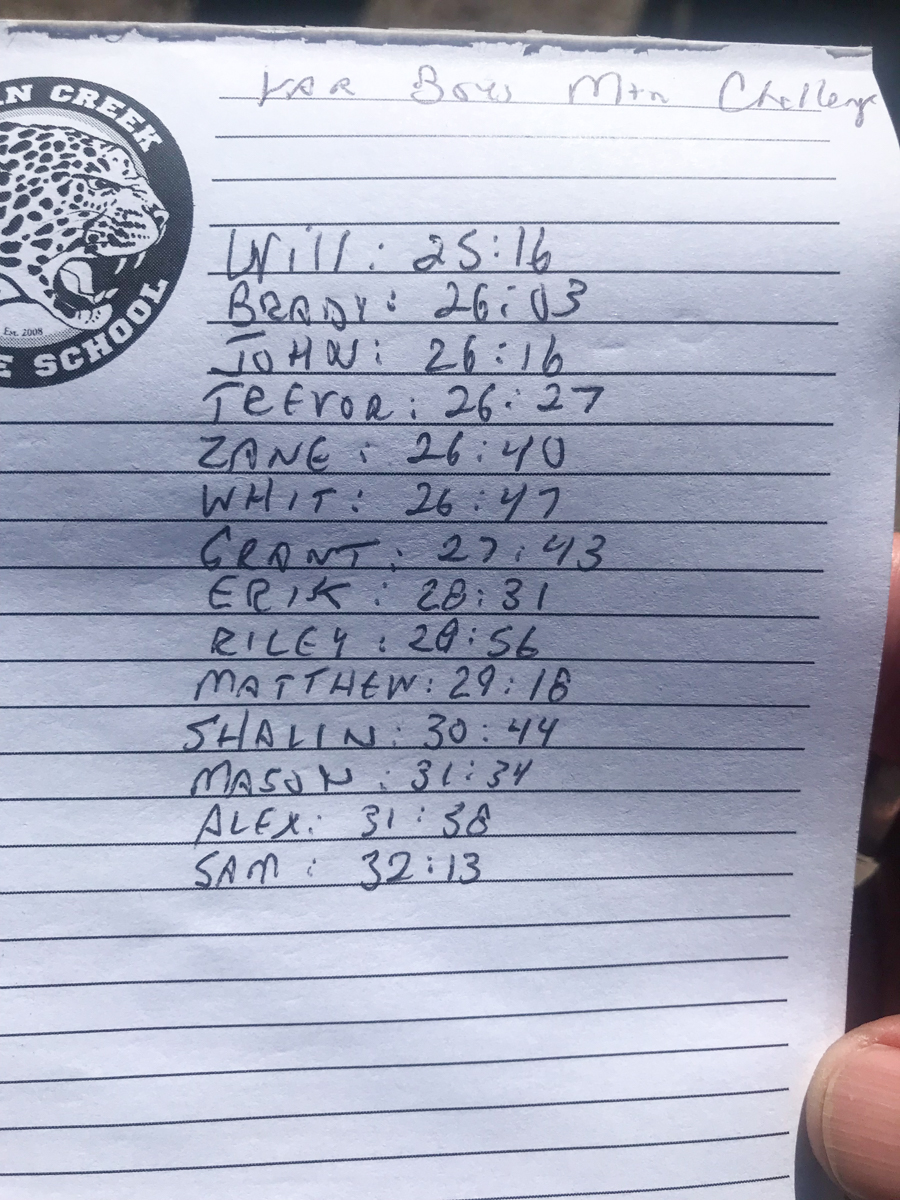 VAR Boys Mtn Challenge
LN CREEK
Est. 2008
E SCHOOL
Will: 25:16
BRADY: 26:03
JOHN: 26:16
TREVOR: 26:27
ZANE: 26:40
WHIT: 26:47
GRANT: 27:43
ERIK: 28:31
RILEY: 28:56
MATTHEW: 29:18
SHALIN: 30:44
MASON: 31:34
ALEX: 31:38
SAM: 32:13